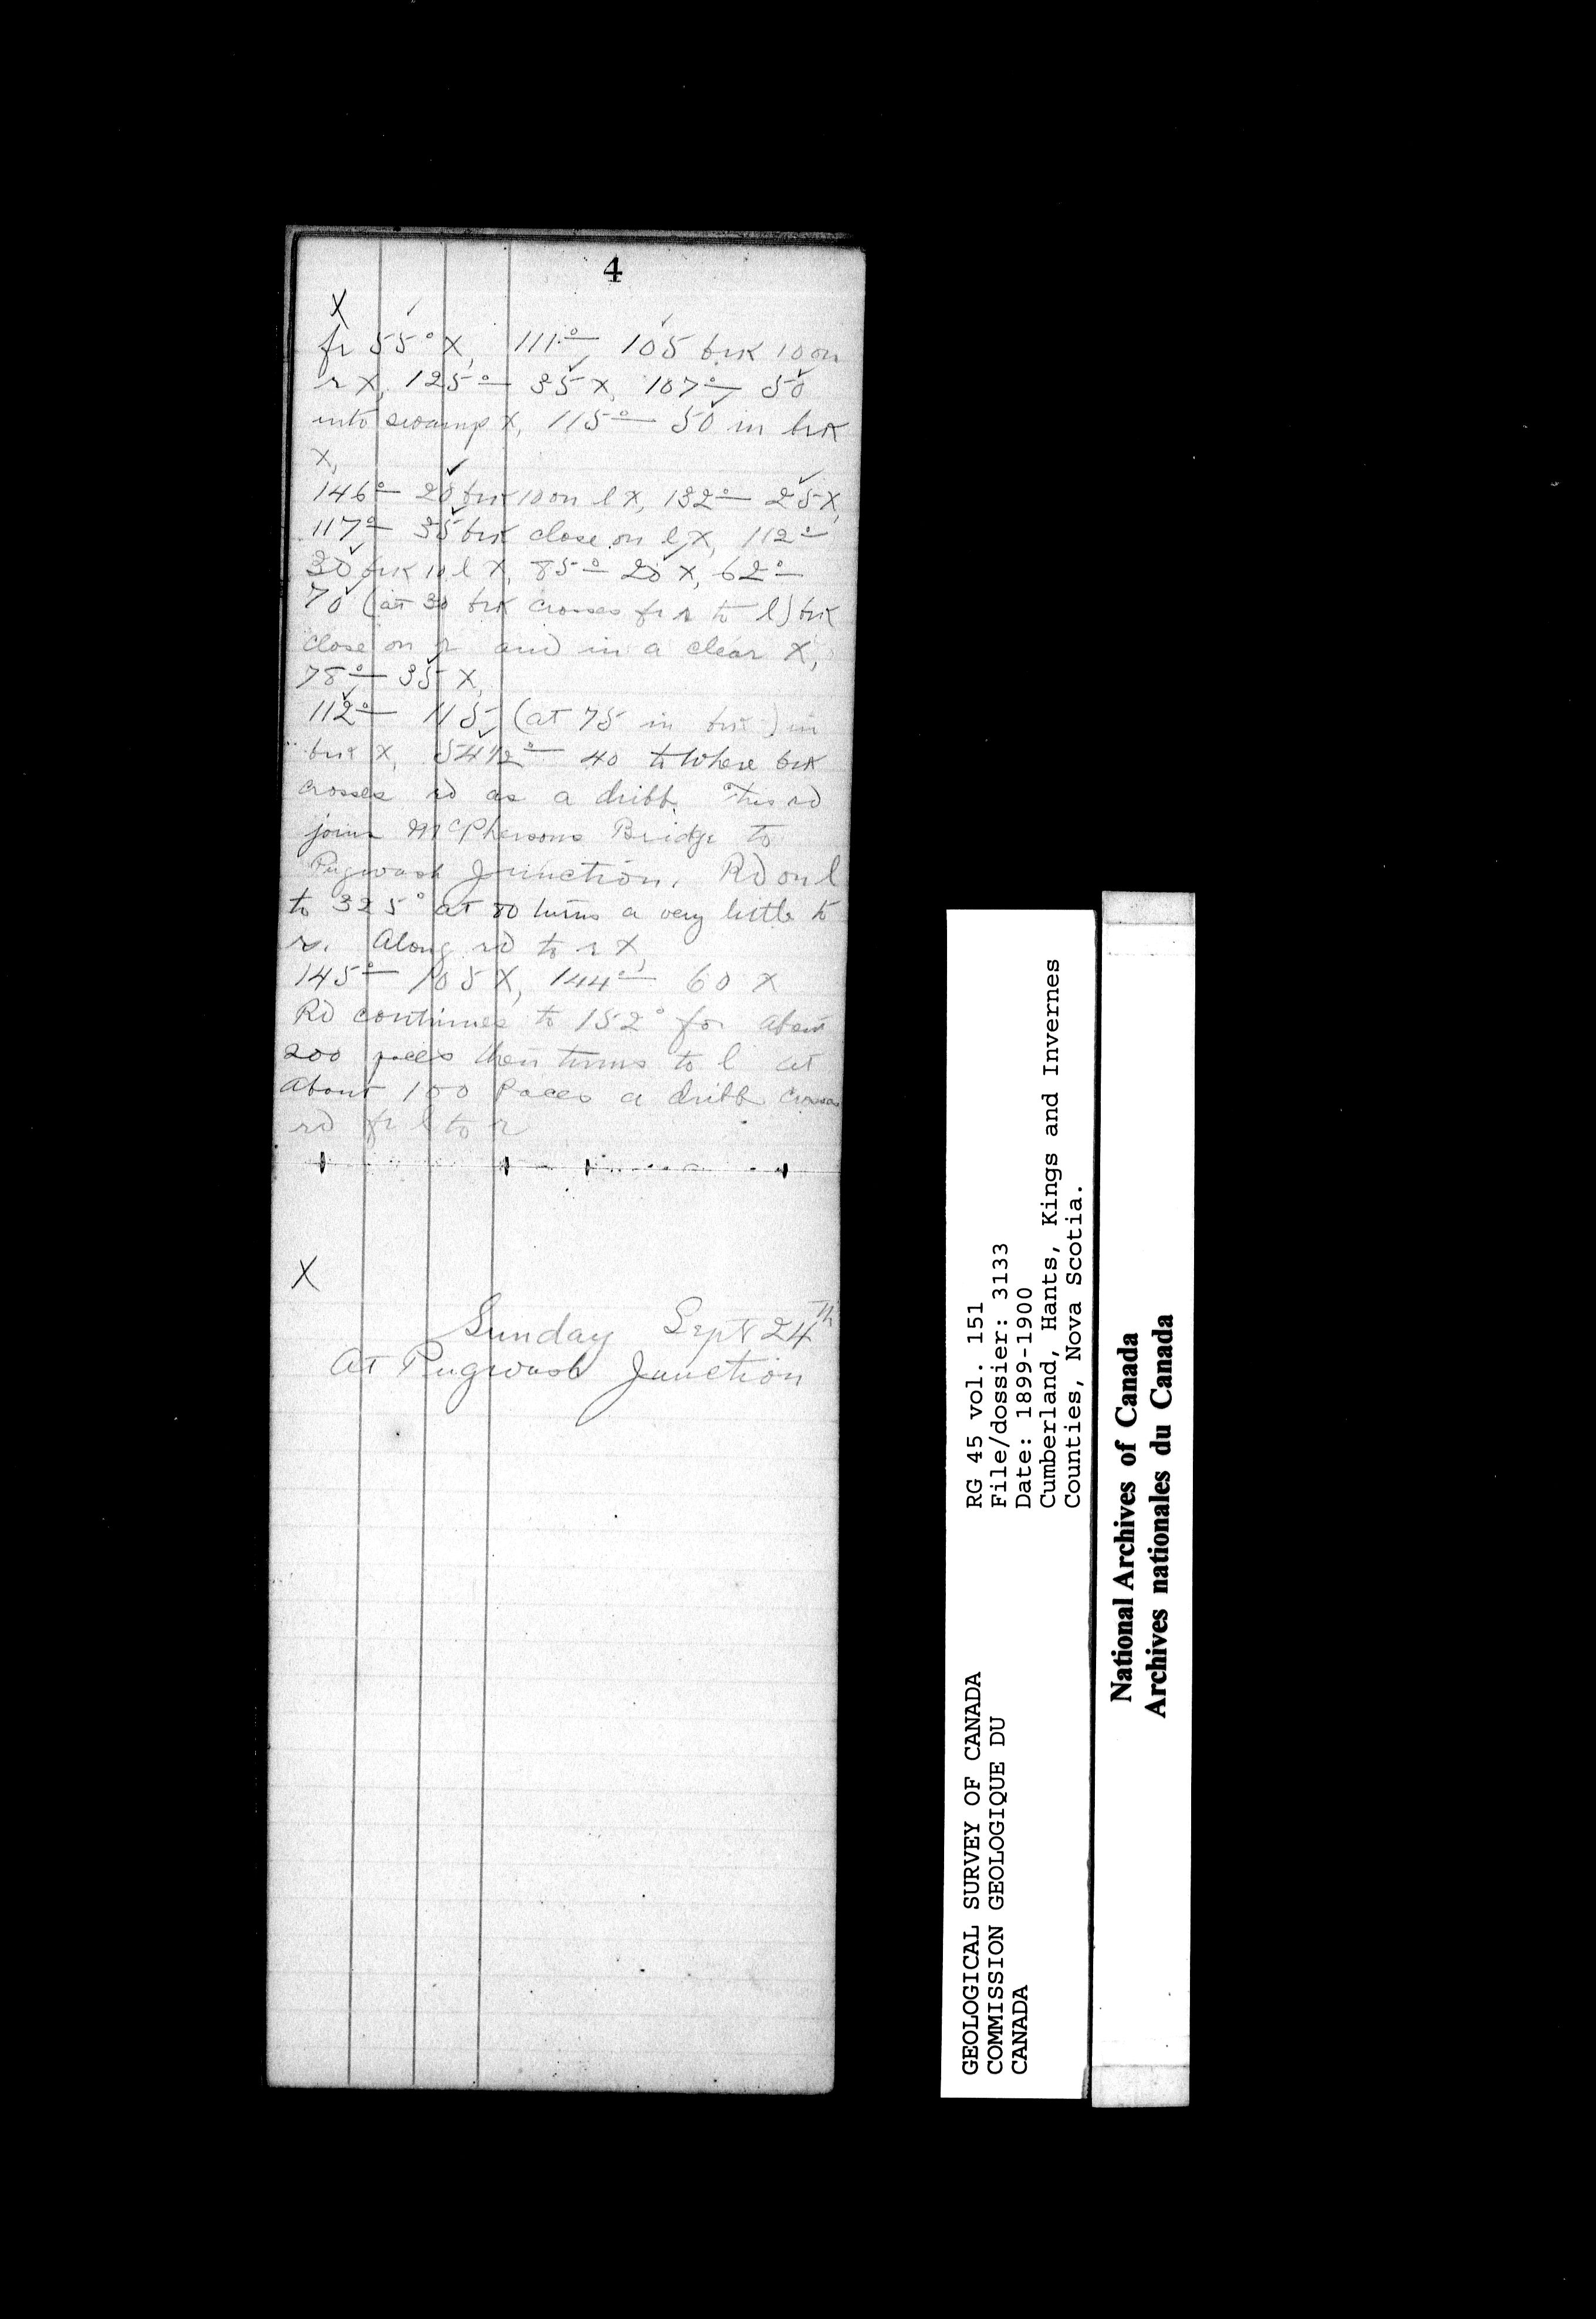 4
X
fr 55° X, 111°— 105 brk 10 on
r X, 125°— 35 X, 107°— 50
into swamp X, 115°— 50 in brk
X,
146°— 20 brk 10 on l X, 132°— 25 X,
117°— 35 brk close on l X, 112°—
30 brk 10 l X, 85°— 20 X, 62°—
70 (at 30 brk crosses fr r to l) brk
close on r and in a clear X,
78°— 35 X,
112°— 115 (at 75 in brk) in
brk X, 54½°— 40 to where brk
crosses rd as a dribb. This rd
joins McPhersons Bridge to
Pugwash Junction. Rd on l
to 325° at 80 turns a very little to
r. Along rd to r X,
145°— 105 X, 144°— 60 X
Rd continues to 152° for about
200 paces then turns to l at
about 100 paces a dribb crosses
rd fr l to r
X
Sunday Sept 24th
At Pugwash Junction
RG 45 vol. 151
File/dossier: 3133
Date: 1899-1900
Cumberland, Hants, Kings and Invernes
Counties, Nova Scotia.
GEOLOGICAL SURVEY OF CANADA
COMMISSION GEOLOGIQUE DU
CANADA
National Archives of Canada
Archives nationales du Canada